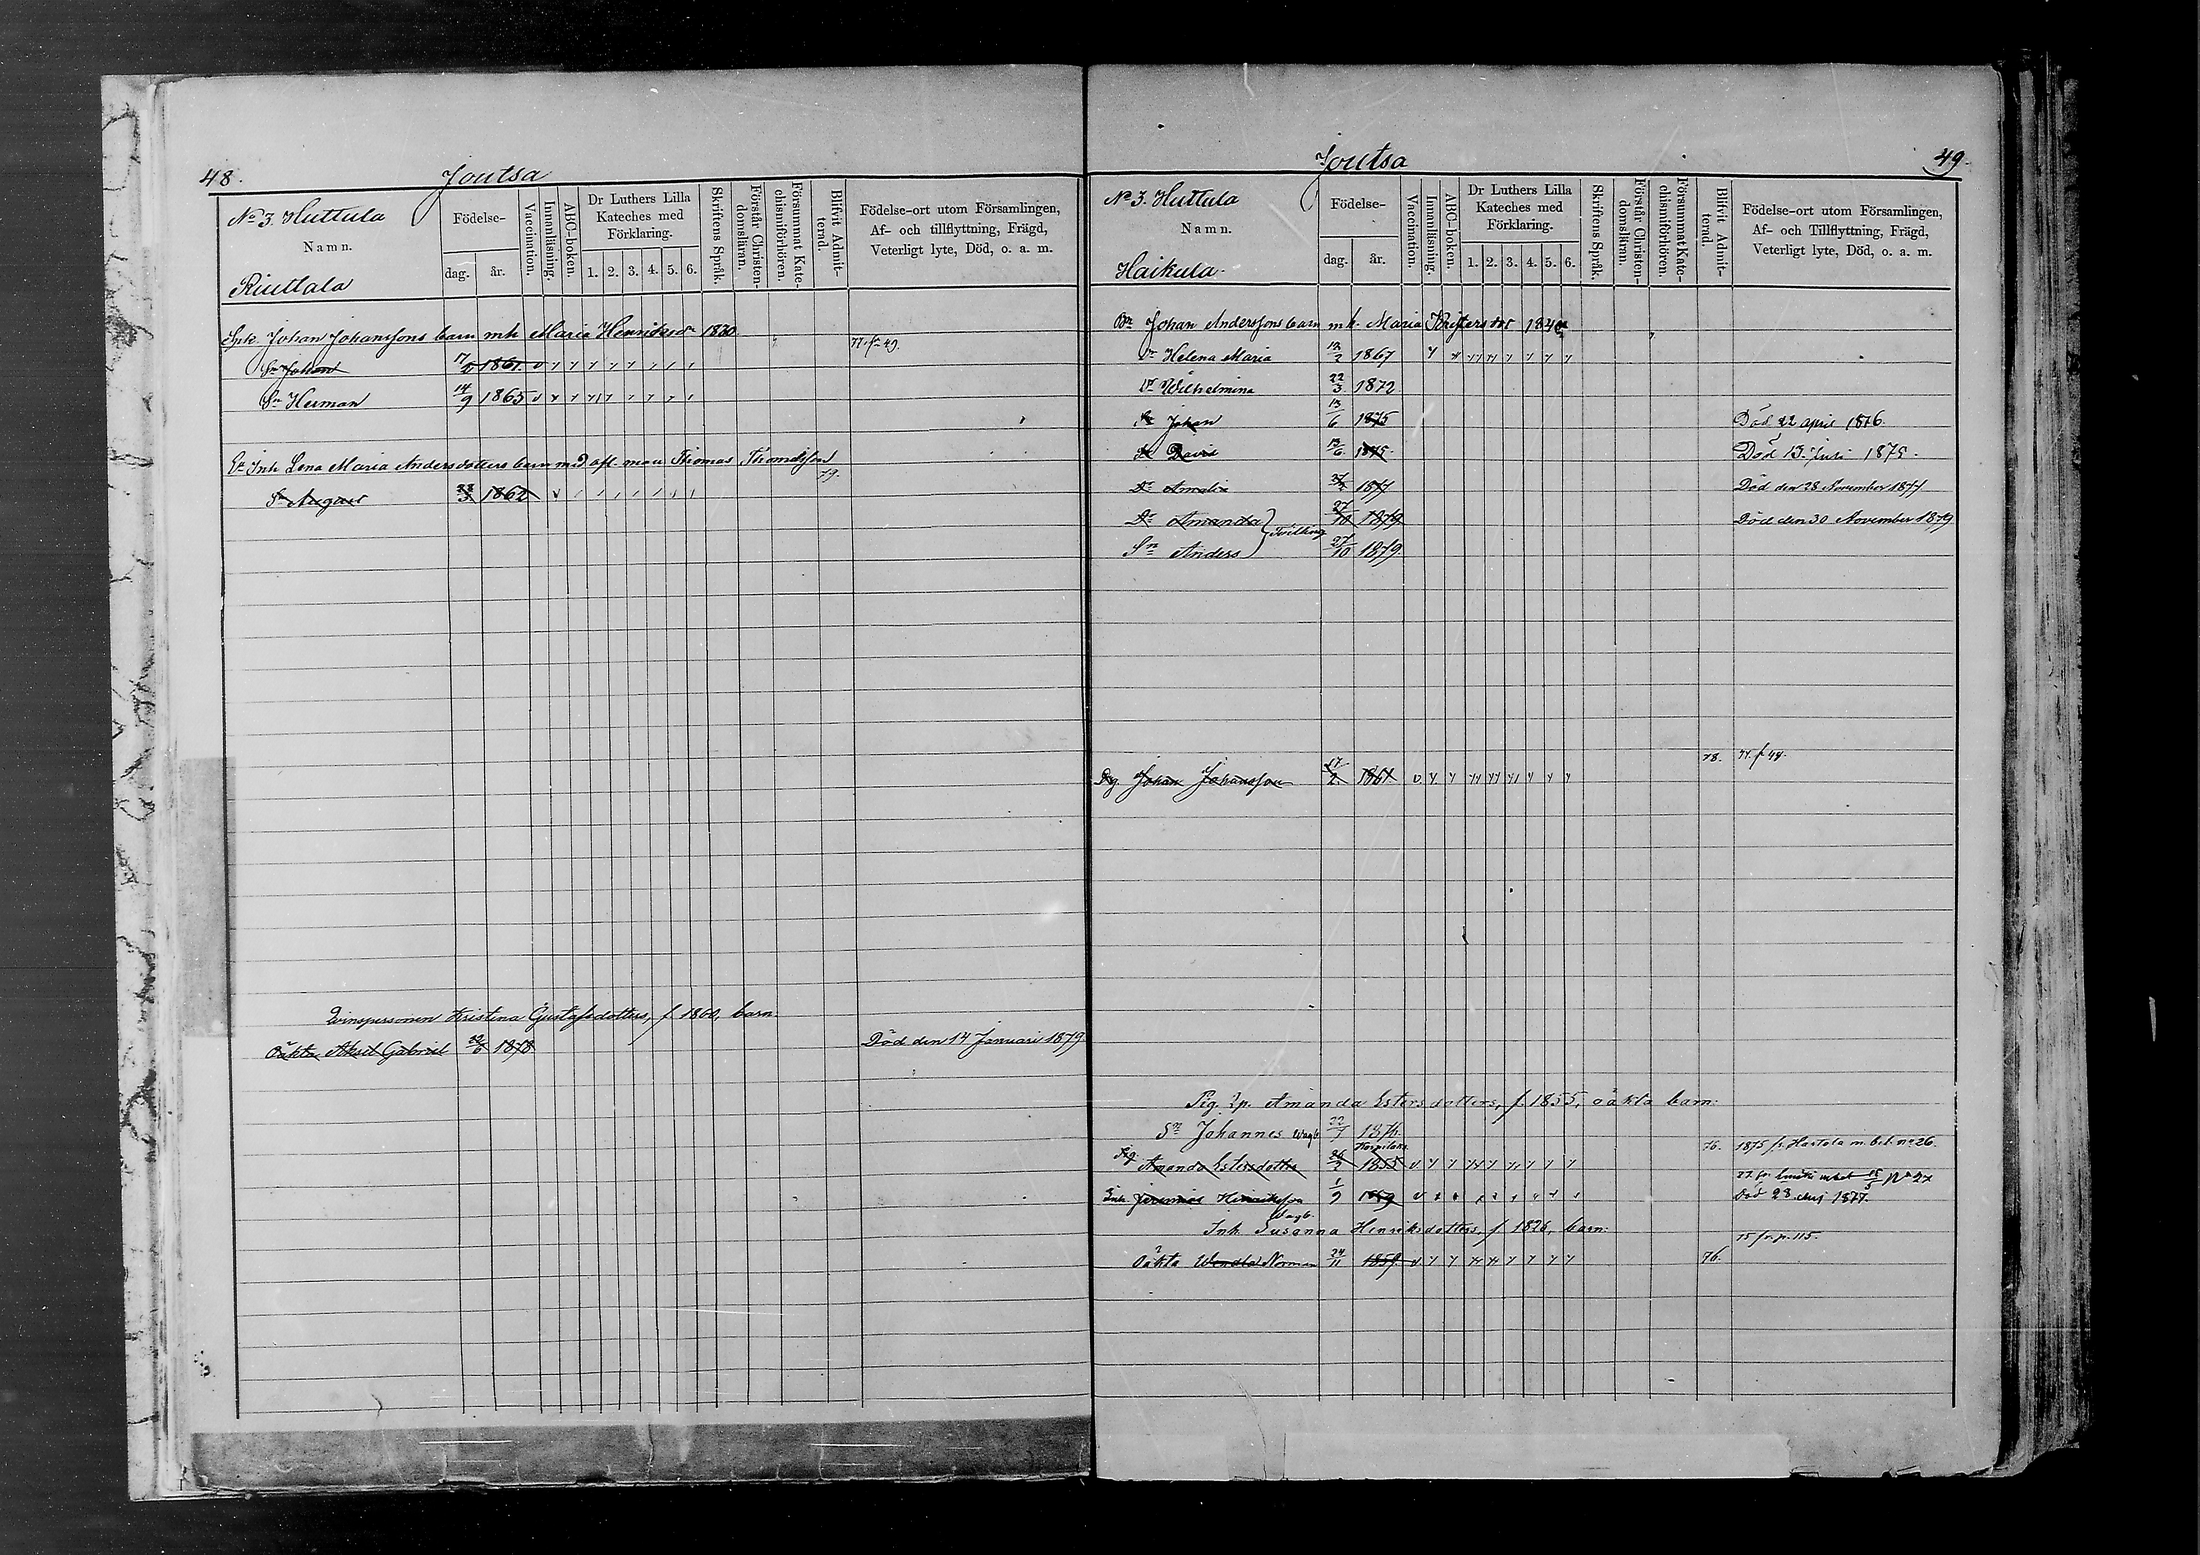 48.
Joutsa
No 3. Huttula
Namn.
Riuttala
Födelse-
dag.
år.
Vaccination.
Innanläsning.
ABC-boken.
Dr Luthers Lilla
Kateches med
Förklaring.
1. 2. 3. 4. 5. 6.
Skriftens Språk.
Förstår Christen-
domsläran.
Försummat Kate-
chismiförhören.
Blifvit Admit-
terad.
Födelse-ort utom Församlingen,
Af- och tillflyttning, Frägd,
Veterligt lyte, Död, o. a. m.
Johan Johanssons barn mh Maria Henriksdr 1830
Sn Johan 17/2 1861 77 fr 49.
Sn Herman 14/9 1865
Inh Lena Maria Andersdotters barn med afl. man Thomas Thomasson
Sn August 1862 79.
Qvinspersonen Kristina Gustafsdotters, f 1860, barn
Oäkta Aksel Gabriel 1878 Död den 14 Januari 1879.
49.
Joutsa
No 3. Huttula
Namn.
Haikula.
Födelse-
dag.
år.
Vaccination.
Innanläsning.
ABC-boken.
Dr Luthers Lilla
Kateches med
Förklaring.
1. 2. 3. 4. 5. 6.
Skriftens Språk.
Förstår Christen-
domsläran.
Försummat Kate-
chismiförhören.
Blifvit Admit-
terad.
Födelse-ort utom Församlingen,
Af- och Tillflyttning, Frägd,
Veterligt lyte, Död, o. a. m.
Bn Johan Anderssons barn mh. Maria
Dr Helena Maria 12/2 1867
Dr Wilhelmina 22/3 1872
Sn Johan 13/6 1875 Död 22 april 1876.
Sn David 13/6 1875 Död 13 Juni 1875.
Dr Amalia 1877 Död den 28 November 1877
Dr Amanda 27/10 1879 Död den 30 November 1879
Tvilling
Sn Anders 27/10 1879
78.
Dg Johan Johansson 17/2 1861
Pig. Amanda Estersdotters, f. 1855, oäkta barn:
Sn Johannes 1876
Pig Amanda Estersdotter 26/2 1855 76. 1875 fr. Hartola m. bet. no 26.
Inh. Henriksson 1/9 Död 23 Maj 1877.
Inh. Susanna Henriksdotters, f 1826, barn:
75 fr. p. 115.
Oäkta 24/11 1859 76.